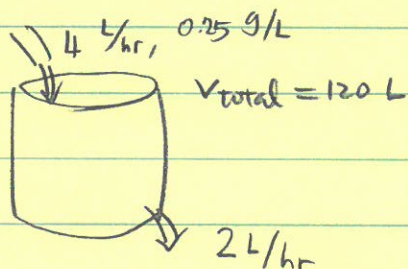 4 L/hr, 0.25 g/L
Vtotal = 120 L
2 L/hr